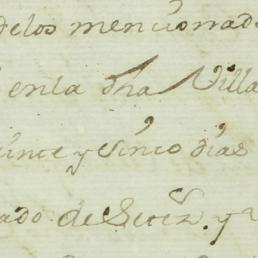 delos mencionad
enla dha Villa
ince y Cinco dias
ado de